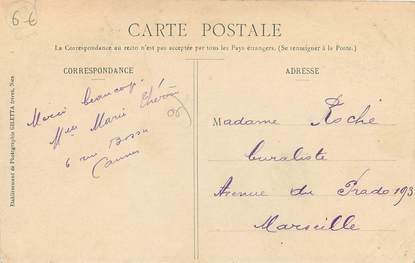 6 €
CARTE POSTALE
La Correspondance au recto n'est pas acceptée par tous les Pays étrangers. (Se renseigner à la Poste.)
CORRESPONDANCE
Merci beaucoup
Marie
6 rue Bossu
Cannes
06
ADRESSE
Madame Roche
buraliste
Avenue du Prado 193
Marseille
Etablissement de Photographie GILETTA frères, Nice